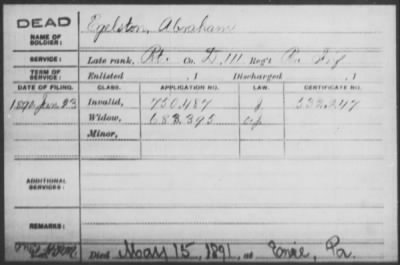 DEAD
NAME OF SOLDIER: Egelston, Abraham
SERVICE: Late rank, Pt. Co. D, 111 Reg't Pa. Inf
TERM OF SERVICE: Enlisted , 1 Discharged , 1
DATE OF FILING. CLASS. APPLICATION NO. LAW. CERTIFICATE NO.
1890 Jun 23 Invalid, 750.487 532.247
Widow, 683.395
Minor,
ADDITIONAL SERVICES:
REMARKS:
Died May 15, 1891, at Erie, Pa.